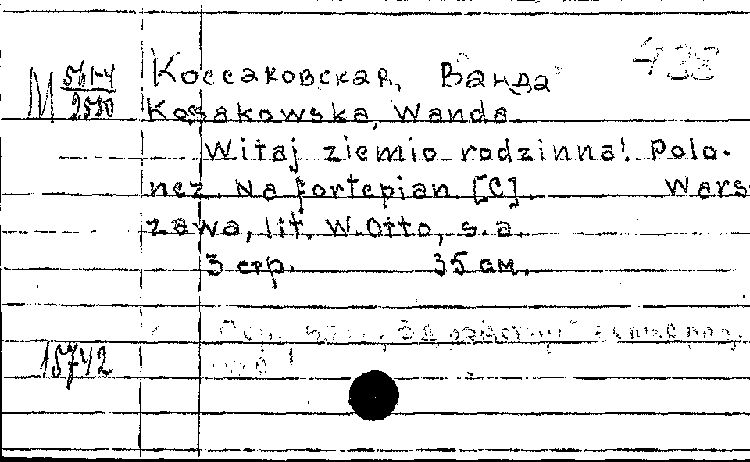 Коссаковская, Ванда
438
M 561-4
2550
Kossakowska, Wanda
Witaj ziemio rodzinna! Polo-
nez. Na fortepian [C]. Wars-
zawa, lit. W. Otto, s. a.
3 стр. 35 см.
15742